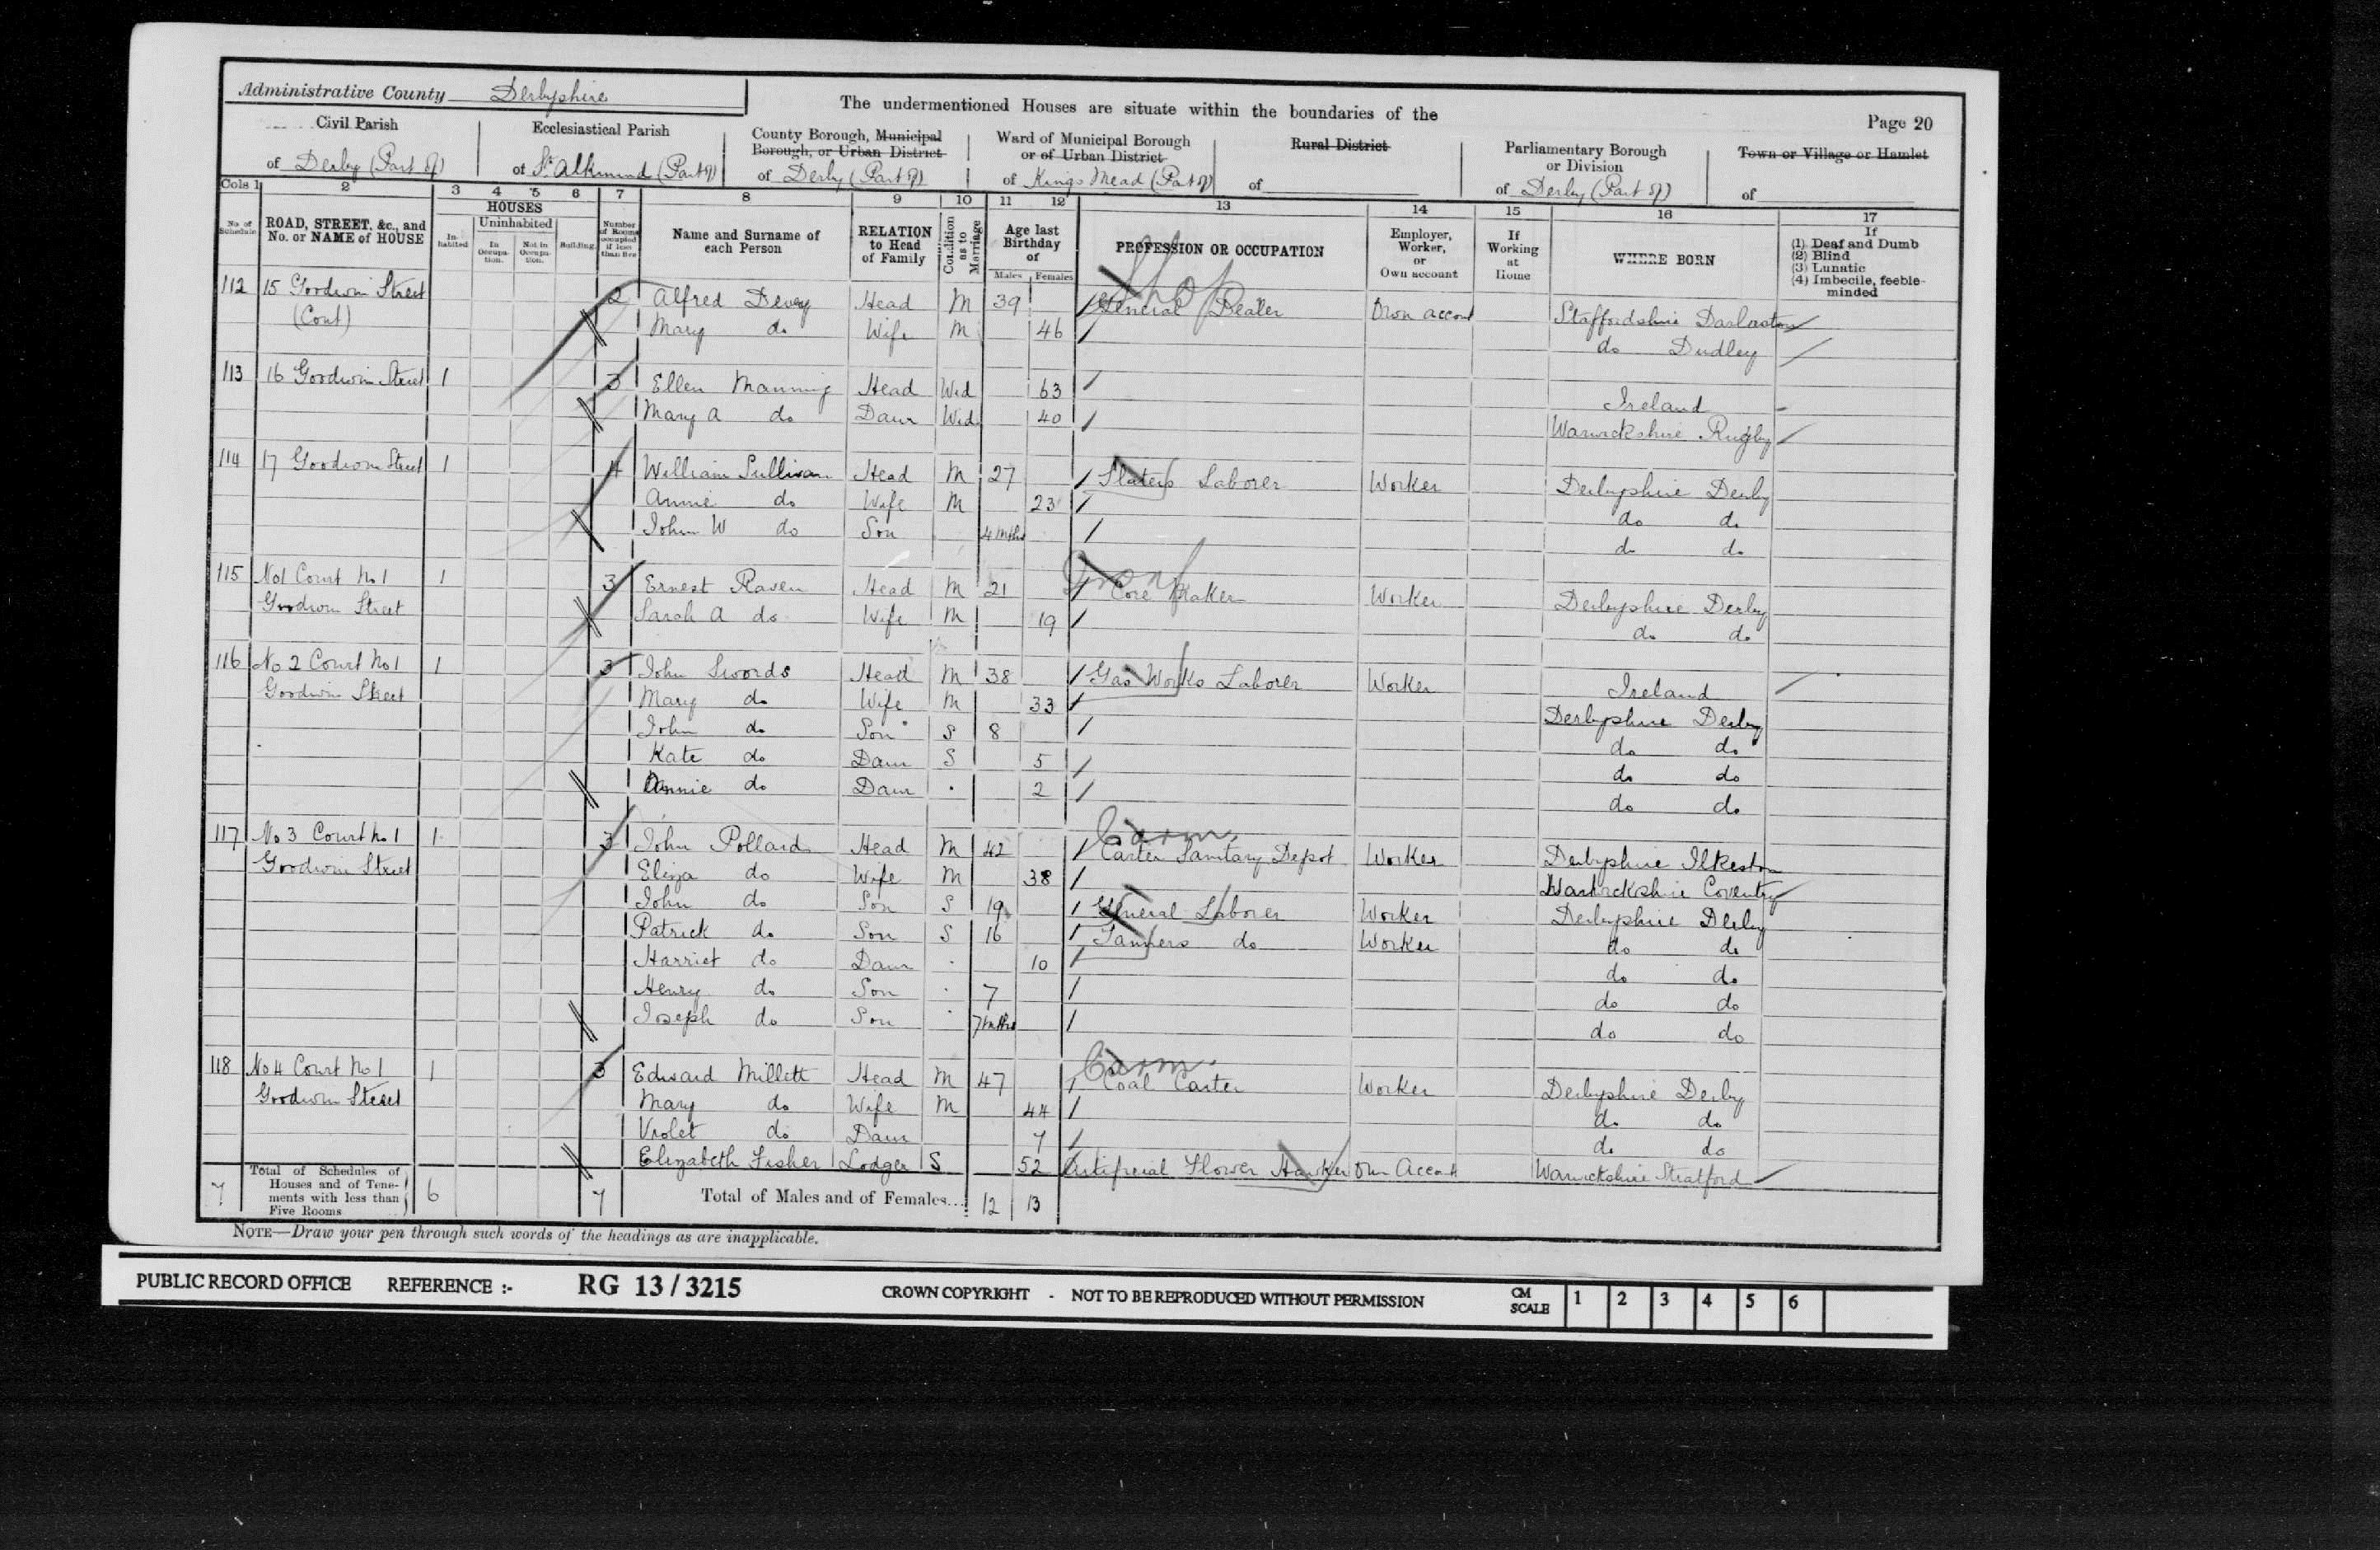 Administrative County Derbyshire
The undermentioned Houses are situate within the boundaries of the
Page 20
Civil Parish
of Derby (Part of)
Ecclesiastical Parish
of St. Alkmund (Part of)
County Borough, Municipal
Borough, or Urban District
of Derby (Part of)
Ward of Municipal Borough
or of Urban District
of Kings Mead (Part of)
Rural District
of
Parliamentary Borough
or Division
of Derby (Part of)
Town or Village or Hamlet
of
Cols 1 2 3 4 5 6 7 8 9 10 11 12 13 14 15 16 17
No. of Schedule
ROAD, STREET, &c., and No. or NAME of HOUSE
HOUSES
Inhabited
Uninhabited
In Occupation.
Not in Occupation.
Building.
Number of Rooms occupied if less than five
Name and Surname of each Person
RELATION to Head of Family
Condition as to Marriage
Age last Birthday of
Males Females
PROFESSION OR OCCUPATION
Employer, Worker, or Own account
If Working at Home
WHERE BORN
If
(1) Deaf and Dumb
(2) Blind
(3) Lunatic
(4) Imbecile, feeble-minded
Shop
112 15 Goodwin Street 2 Alfred Devey Head M 39 General Dealer Own account Staffordshire Darlaston
(Cont) Mary do Wife M 46 do Dudley
113 16 Goodwin Street 1 3 Ellen Manning Head Wid 63 Ireland
Mary A do Daur Wid 40 Warwickshire Rugby
114 17 Goodwin Street 1 4 William Sullivan Head M 27 Slaters Laborer Worker Derbyshire Derby
Annie do Wife M 23 do do
John W do Son 4 mths do do
115 No1 Court No 1 1 3 Ernest Raven Head M 21 Core Maker Worker Derbyshire Derby
Goodwin Street Sarah A do Wife M 19 do do
116 No 2 Court No 1 1 3 John Swords Head M 38 Gas Works Laborer Worker Ireland
Goodwin Street Mary do Wife M 33 Derbyshire Derby
John do Son S 8 do do
Kate do Daur S 5 do do
Annie do Daur 2 do do
Carm
117 No 3 Court No 1 1 3 John Pollard Head M 42 Carter Sanitary Depot Worker Derbyshire Ilkeston
Goodwin Street Eliza do Wife M 38 Warwickshire Coventry
John do Son S 19 General Laborer Worker Derbyshire Derby
Patrick do Son S 16 Tanners do Worker do do
Harriet do Daur 10 do do
Henry do Son 7 do do
Joseph do Son 7 mths do do
Carm
118 No 4 Court No 1 1 3 Edward Millett Head M 47 Coal Carter Worker Derbyshire Derby
Goodwin Street Mary do Wife M 44 do do
Violet do Daur 7 do do
Elizabeth Fisher Lodger S 52 Artificial Flower Hawker Own Account Warwickshire Stratford
7 Total of Schedules of Houses and of Tenements with less than Five Rooms 6 7 Total of Males and of Females... 12 13
NOTE—Draw your pen through such words of the headings as are inapplicable.
PUBLIC RECORD OFFICE REFERENCE :- RG 13 / 3215 CROWN COPYRIGHT - NOT TO BE REPRODUCED WITHOUT PERMISSION CM SCALE 1 2 3 4 5 6